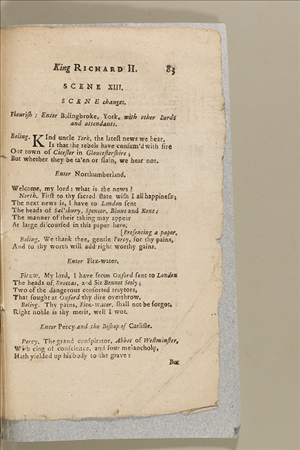 King RICHARD II. 83
SCENE XIII.
SCENE changes.
Flourish: Enter Bolingbroke, York, with other Lords
and attendants.
Boling. KInd uncle York, the latest news we hear,
Is that the rebels have consum'd with fire
Our town of Cicester in Glocestershire;
But whether they be ta'en or slain, we hear not.
Enter Northumberland.
Welcome, my lord: what is the news?
North. First to thy sacred state wish I all happiness;
The next news is, I have to London sent
The heads of Sal'sbury, Spencer, Blunt and Kent:
The manner of their taking may appear
At large discoursed in this paper here.
[Presenting a paper.
Boling. We thank thee, gentle Percy, for thy pains,
And to thy worth will add right worthy gains.
Enter Fitz-water.
Fitzw. My lord, I have from Oxford sent to London
The heads of Broccas, and Sir Bennet Seely;
Two of the dangerous consorted traytors,
That sought at Oxford thy dire overthrow.
Boling. Thy pains, Fitz-water, shall not be forgot,
Right noble is thy merit, well I wot.
Enter Percy and the Bishop of Carlisle.
Percy. The grand conspirator, Abbot of Westminster,
With clog of conscience, and sour melancholy,
Hath yielded up his body to the grave:
But